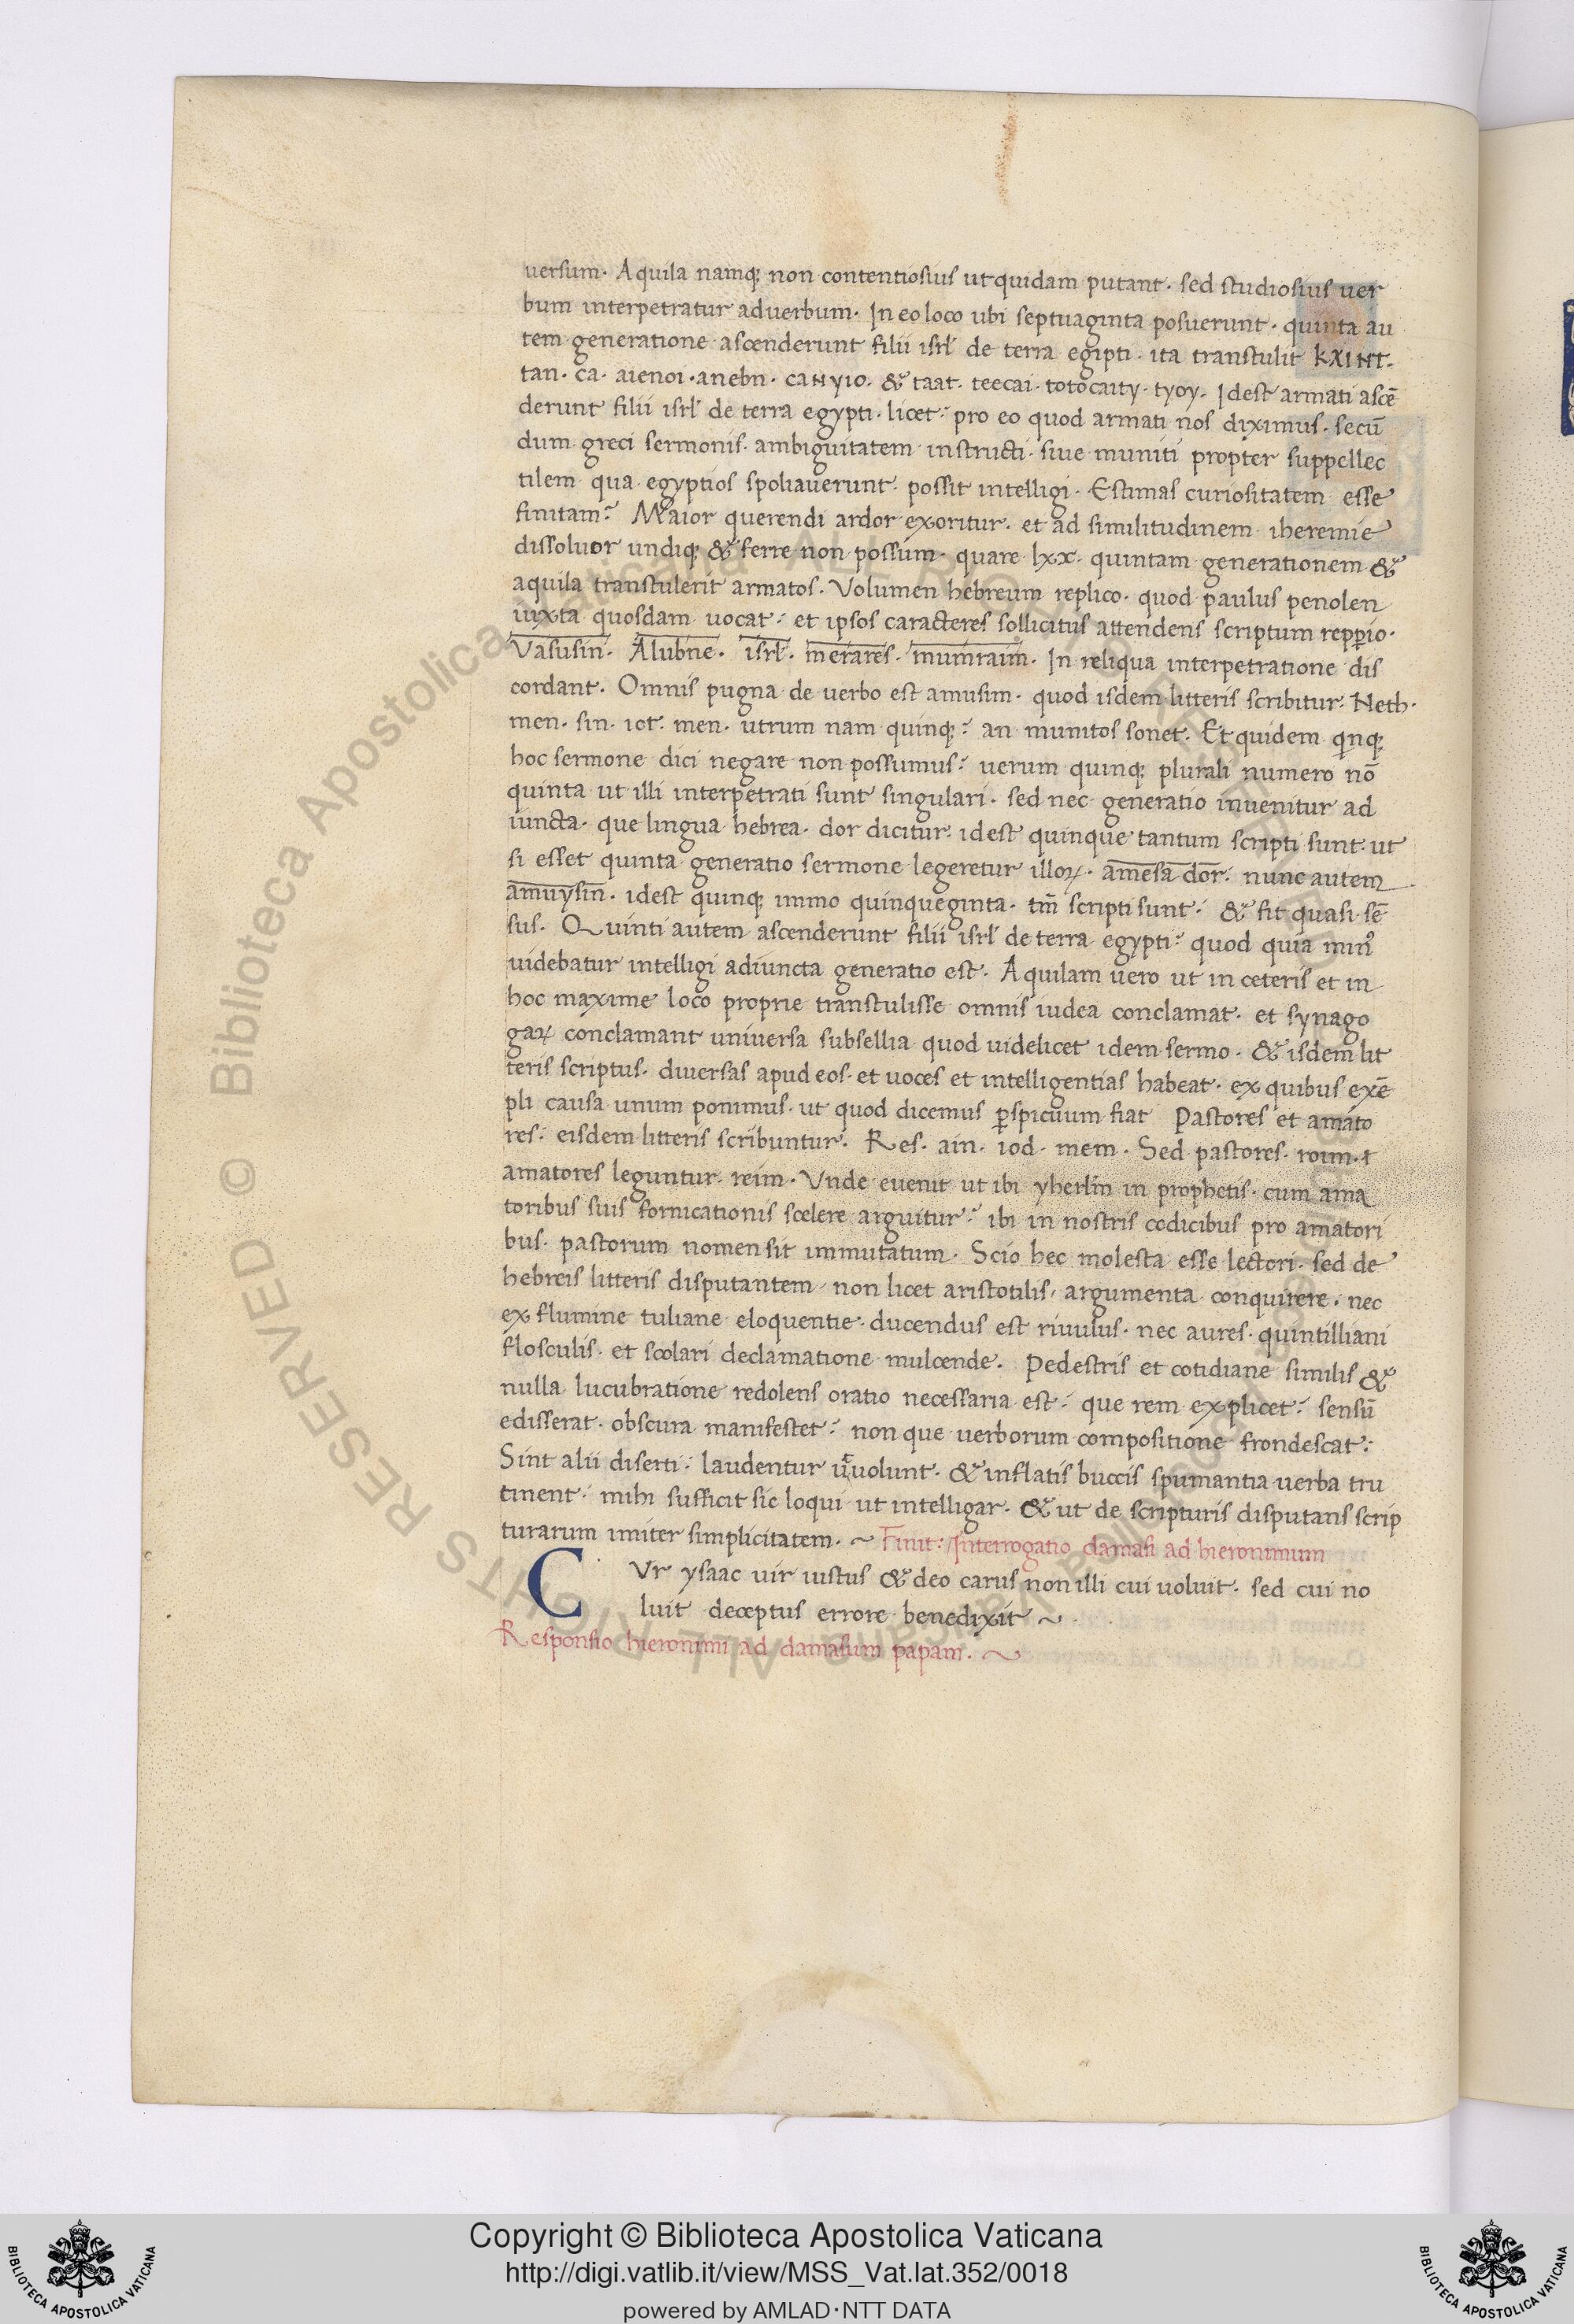 uersum. Aquila namq; non contentiosius ut quidam putant. sed studiosius uer
bum interpetratur aduerbum. In eo loco ubi septuaginta posuerunt. quinta au
tem generatione ascenderunt filii isrl̄ de terra egipti. ita transtulit kXINT.
tan. ca. aienoi. anebn. caNyIO. & taat. teecai. totocaity. tyoy. Idest armati ascē
derunt filii isrl̄ de terra egypti. licet: pro eo quod armati nos diximus. secū
dum greci sermonis. ambiguitatem instructi. siue muniti propter suppellec
tilem qua egyptios spoliauerunt. possit intelligi. Estimas curiositatem esse
finitam? Maior querendi ardor exoritur. et ad similitudinem iheremie
dissoluor undiq; & ferre non possum. quare lxx. quintam generationem &
aquila transtulerit armatos. Volumen hebreum replico. quod paulus penolen
iuxta quosdam uocat: et ipsos caracteres sollicitus attendens scriptum repperio.
Vasusin. Alubne. isrl̄. merares. mumraim. In reliqua interpetratione dis
cordant. Omnis pugna de uerbo est amusim. quod isdem litteris scribitur. Neth.
men. sin. iot. men. utrum nam quinq;? an munitos sonet. Et quidem qinq;
hoc sermone dici negare non possumus: uerum quinq; plurali numero nō
quinta ut illi interpetrati sunt singulari. sed nec generatio inuenitur ad
iuncta. que lingua hebrea. dor dicitur: idest quinque tantum scripti sunt. ut
si esset quinta generatio sermone legeretur illoꝝ. amesa dor. nunc autem
amuysin. idest quinq; immo quinqueginta. tm̄ scripti sunt: & fit quasi sē
sus. Quinti autem ascenderunt filii isrl̄ de terra egypti: quod quia min⁹
uidebatur intelligi adiuncta generatio est. Aquilam uero ut in ceteris et in
hoc maxime loco proprie transtulisse omnis iudea conclamat. et synago
gaꝝ conclamant uniuersa subsellia quod uidelicet idem sermo. & isdem lit
teris scriptus. diuersas apud eos. et uoces et intelligentias habeat. ex quibus exē
pli causa unum ponimus. ut quod dicemus ꝑspicuum fiat Pastores et amato
res. eisdem litteris scribuntur. Res. ain. iod. mem. Sed pastores. roim. ⁊
amatores leguntur. reim. Vnde euenit ut ibi yherlm̄ in prophetis. cum ama
toribus suis fornicationis scelere arguitur: ibi in nostris codicibus pro amatori
bus. pastorum nomen sit immutatum. Scio hec molesta esse lectori. sed de
hebreis litteris disputantem non licet aristotilis, argumenta conquirere. nec
ex flumine tuliane eloquentie. ducendus est riuulus. nec aures. quintilliani
flosculis. et scolari declamatione mulcende. Pedestris et cotidiane similis &
nulla lucubratione redolens oratio necessaria est: que rem explicet: sensū
edisserat. obscura manifestet: non que uerborum compositione frondescat:
Sint alii diserti: laudentur ut uolunt. & inflatis buccis spumantia uerba tru
tinent: mihi sufficit sic loqui ut intelligar. & ut de scripturis disputans scrip
turarum imiter simplicitatem. ~ Finit: Interrogatio damasi ad hieronimum
CVr ysaac uir iustus & deo carus non illi cui uoluit. sed cui no
luit deceptus errore benedixit ~.
Responsio hieronimi ad damasum papam. ~
© Biblioteca Apostolica Vaticana ALL RIGHTS RESERVED
Copyright © Biblioteca Apostolica Vaticana
http://digi.vatlib.it/view/MSS_Vat.lat.352/0018
powered by AMLAD·NTT DATA
BIBLIOTECA APOSTOLICA VATICANA
BIBLIOTECA APOSTOLICA VATICANA